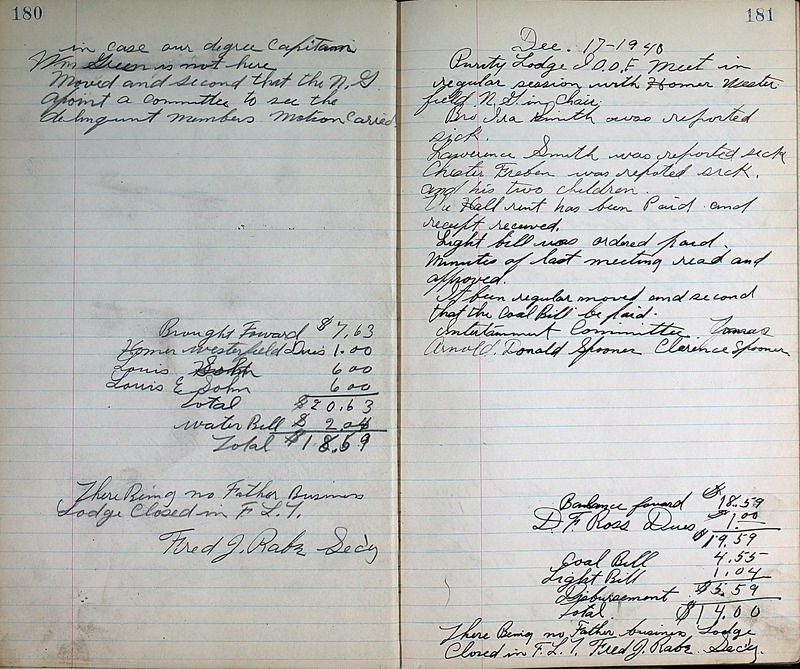 180
in case our degree Capitann
Wm Green is not here
Moved and second that the N. G
apoint a committee to see the
delinqunt members Motion Carred.
Brought Foward $7.63
Homer Westerfield Dues 1.00
Louis Sohn 6 00
Louis E Sohn 6 00
Total $20.63
Water Bill $ 2.04
Total $18.59
There Being no Father Business
Lodge Closed in F. L. T.
Fred J. Rabe Sec'y
181
Dec. 17-1940
Purity Lodge I.O.O.F. Meet in
regular session with Homer Wester
field N. G. in Chair.
Bro Ira Smith was reported
sick.
Lawerence Smith was reported sick
Chester Freben was repoted sick.
and his two children.
The Hall rent has been Paid and
receipt received.
Light bill was ordered paid.
Minutes of last meeting read and
approved.
It been regular moved and second
that the Coal Bill be paid.
Entertainment Committee
Arnold. Donald Spooner Clarence Spooner
Balance foward $18.59
D. F. Ross Dues $1.00
$19.59
Coal Bill 4.55
Light Bill 1.04
Disbursement $5.59
Total $14.00
There Being no Father busines Lodge
Closed in F. L. T. Fred J. Rabe Sec'y.